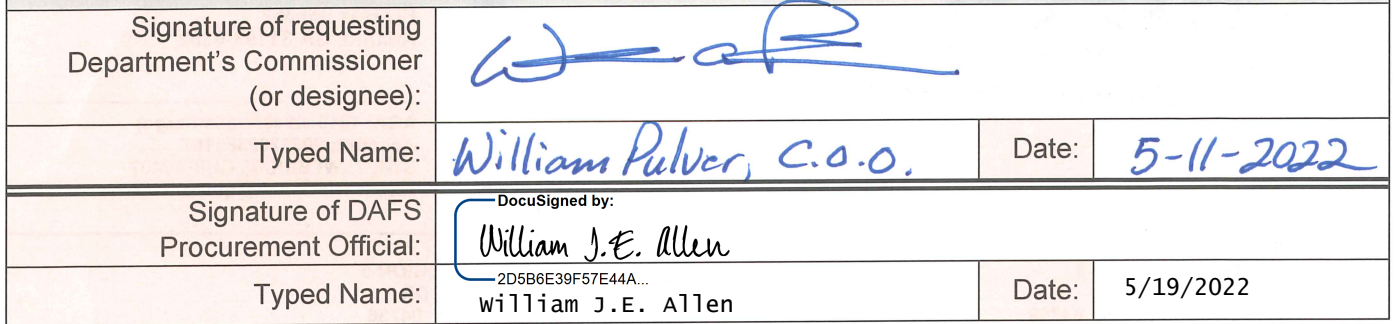 Signature of requesting
Department's Commissioner
(or designee):
Typed Name: William Pulver, C.O.O. Date: 5-11-2022
Signature of DAFS
Procurement Official:
DocuSigned by:
William J.E. Allen
2D5B6E39F57E44A...
Typed Name: William J.E. Allen Date: 5/19/2022